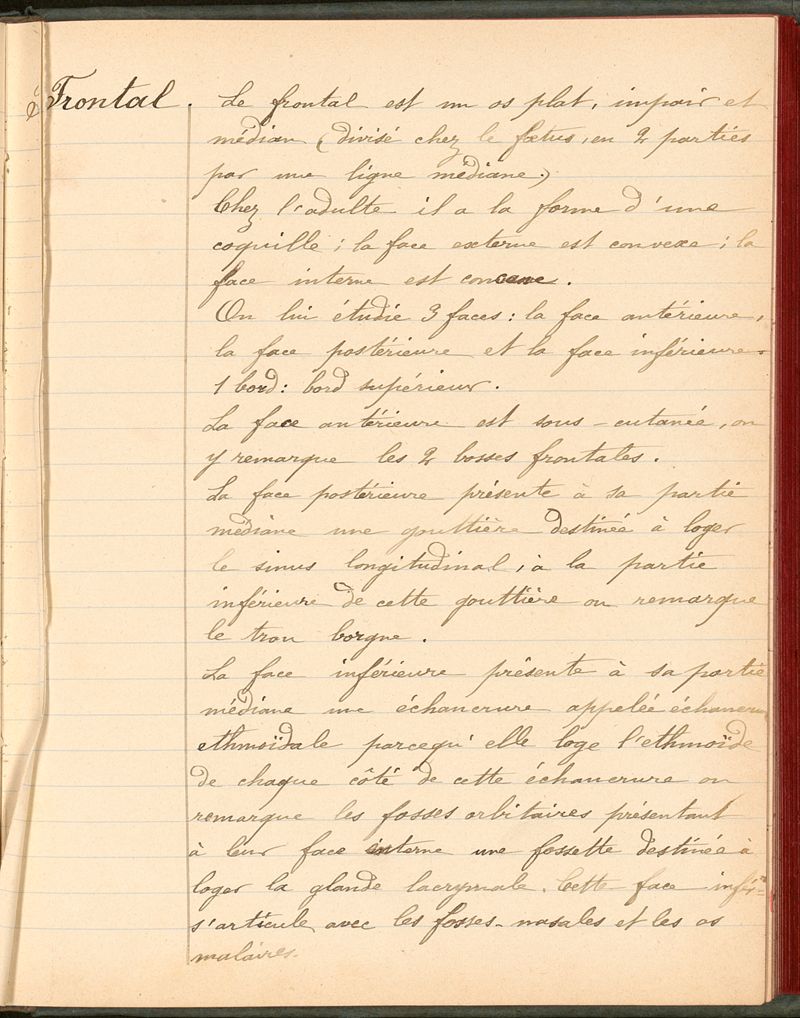 Frontal. Le frontal est un os plat, impair et
médian (divisé chez le fœtus, en 2 parties
par une ligne médiane.)
Chez l'adulte il a la forme d'une
coquille ; la face externe est convexe ; la
face interne est concave.
On lui étudie 3 faces : la face antérieure,
la face postérieure et la face inférieure.
1 bord : bord supérieur.
La face antérieure est sous-cutanée, on
y remarque les 2 bosses frontales.
La face postérieure présente à sa partie
médiane une gouttière destinée à loger
le sinus longitudinal, à la partie
inférieure de cette gouttière on remarque
le trou borgne.
La face inférieure présente à sa partie
médiane une échancrure appelée échancru
ethmoïdale parcequ'elle loge l'ethmoïde
de chaque côté de cette échancrure on
remarque les fosses orbitaires présentant
à leur face interne une fossette destinée à
loger la glande lacrymale. Cette face infér
s'articule avec les fosses-nasales et les os
malaires.